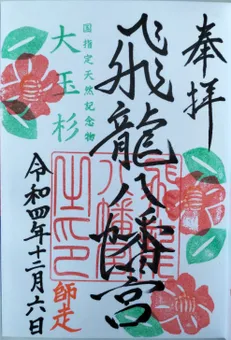 奉拝
飛龍八幡宮
国指定天然記念物
大玉杉
令和四年十二月六日
師走